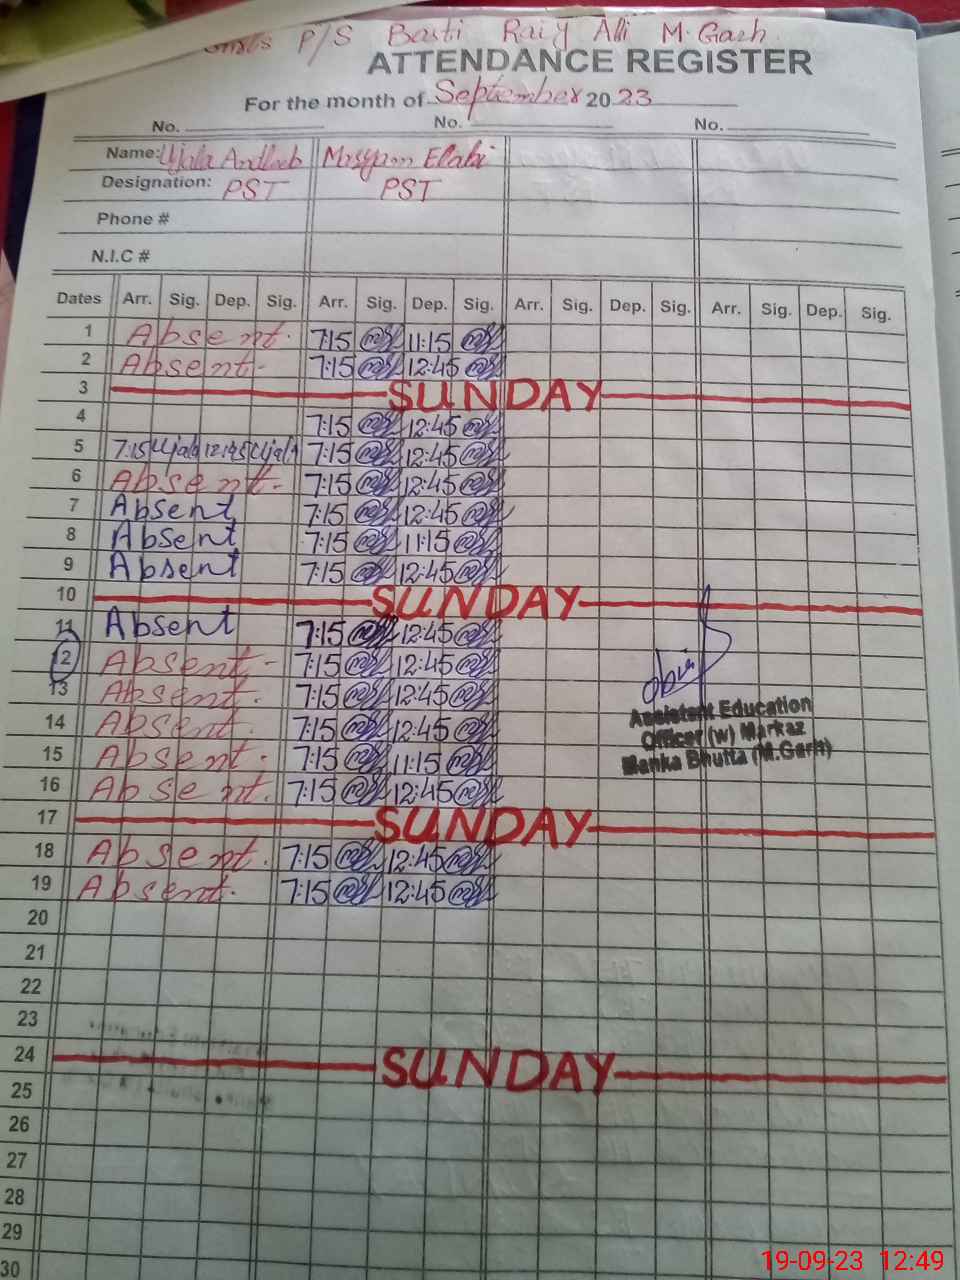 P/S Basti Raiz Ali M. Garh
ATTENDANCE REGISTER
For the month of September 2023
No. No. No.
Name: Ujala Andleeb Maryam Elahi
Designation: PST PST
Phone #
N.I.C #
Dates Arr. Sig. Dep. Sig. Arr. Sig. Dep. Sig. Arr. Sig. Dep. Sig. Arr. Sig. Dep. Sig.
1 Absent. 7:15 11:15
2 Absent 7:15 12:45
3 SUNDAY
4 7:15 12:45
5 7:15 Ujala 12:45 Ujala 7:15 12:45
6 Absent. 7:15 12:45
7 Absent 7:15 12:45
8 Absent 7:15 11:15
9 Absent 7:15 12:45
10 SUNDAY
11 Absent 7:15 12:45
12 Absent 7:15 12:45
13 Absent. 7:15 12:45
14 Absent. 7:15 12:45
15 Absent. 7:15 11:15
16 Absent. 7:15 12:45
Assistant Education
Officer (w) Markaz
Manka Bhutta (M.Garh)
17 SUNDAY
18 Absent. 7:15 12:45
19 Absent. 7:15 12:45
20
21
22
23
24 SUNDAY
25
26
27
28
29
30
19-09-23 12:49